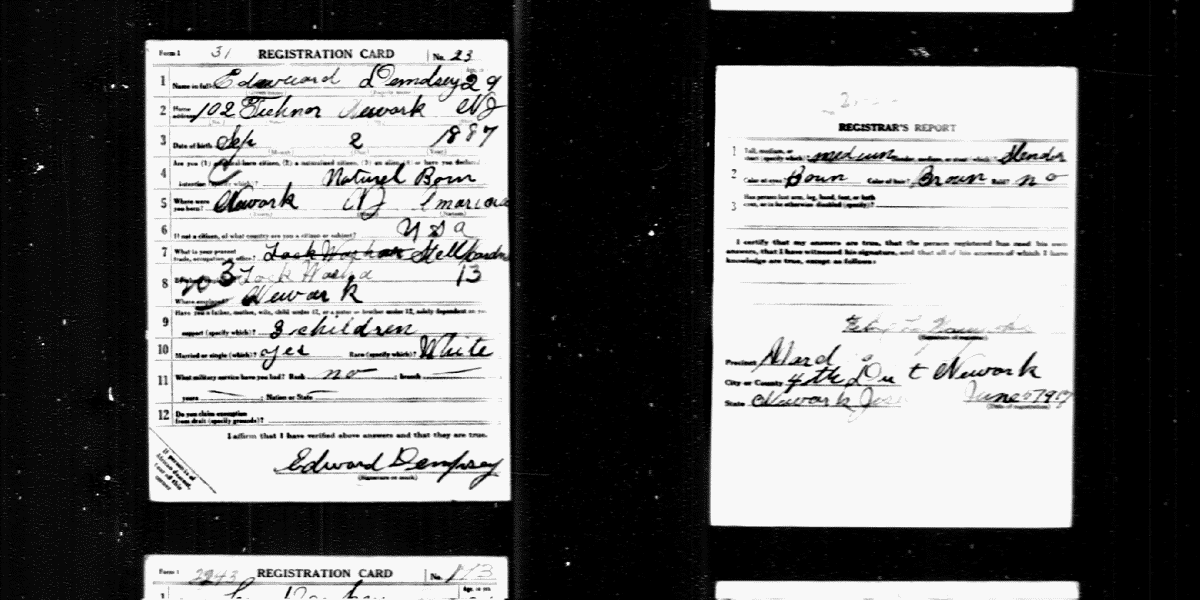 Form 1 31 REGISTRATION CARD No. 23
1 Name in full Edwuard Demdsey 29
2 Home address 102 Tichnor Newark NJ
3 Date of birth Sep 2 1887
(Month) (Day) (Year)
Are you (1) natural-born citizen, (2) a naturalized citizen, (3) an alien, (4) or have you declared
4 intention (specify which)? Naturel Born
5 Where were you born? Newark NJ
6 If not a citizen, of what country are you a citizen or subject? U S A
7 What is your present trade, occupation, or office? Lock Washer Stell
8 3 Lock Washa 13
Where employed? Newark
Have you a father, mother, wife, child under 12, or a sister or brother under 12, solely dependent on you
9 support (specify which)? 3 children
10 Married or single (which)? yes Race (specify which)? White
11 What military service have you had? Rank no ; branch
years ; Nation or State
12 Do you claim exemption from draft (specify grounds)?
I affirm that I have verified above answers and that they are true.
Edward Dempsey
(Signature or mark)
If person is of African descent, tear off this corner
Form 1 2243 REGISTRATION CARD No. 113
1
REGISTRAR'S REPORT
1 Tall, medium, or short (specify which)? medium Slender, medium, or stout (which)? Slender
2 Color of eyes? Boun Color of hair? Broun Bald? no
3 Has person lost arm, leg, hand, foot, or both eyes, or is he otherwise disabled (specify)?
I certify that my answers are true, that the person registered has read his own
answers, that I have witnessed his signature, and that all of his answers of which I have
knowledge are true, except as follows:
(Signature of registrar)
Precinct Ward 8
City or County 4th Dis t Newark
State Newark June 5 1917
(Date of registration)